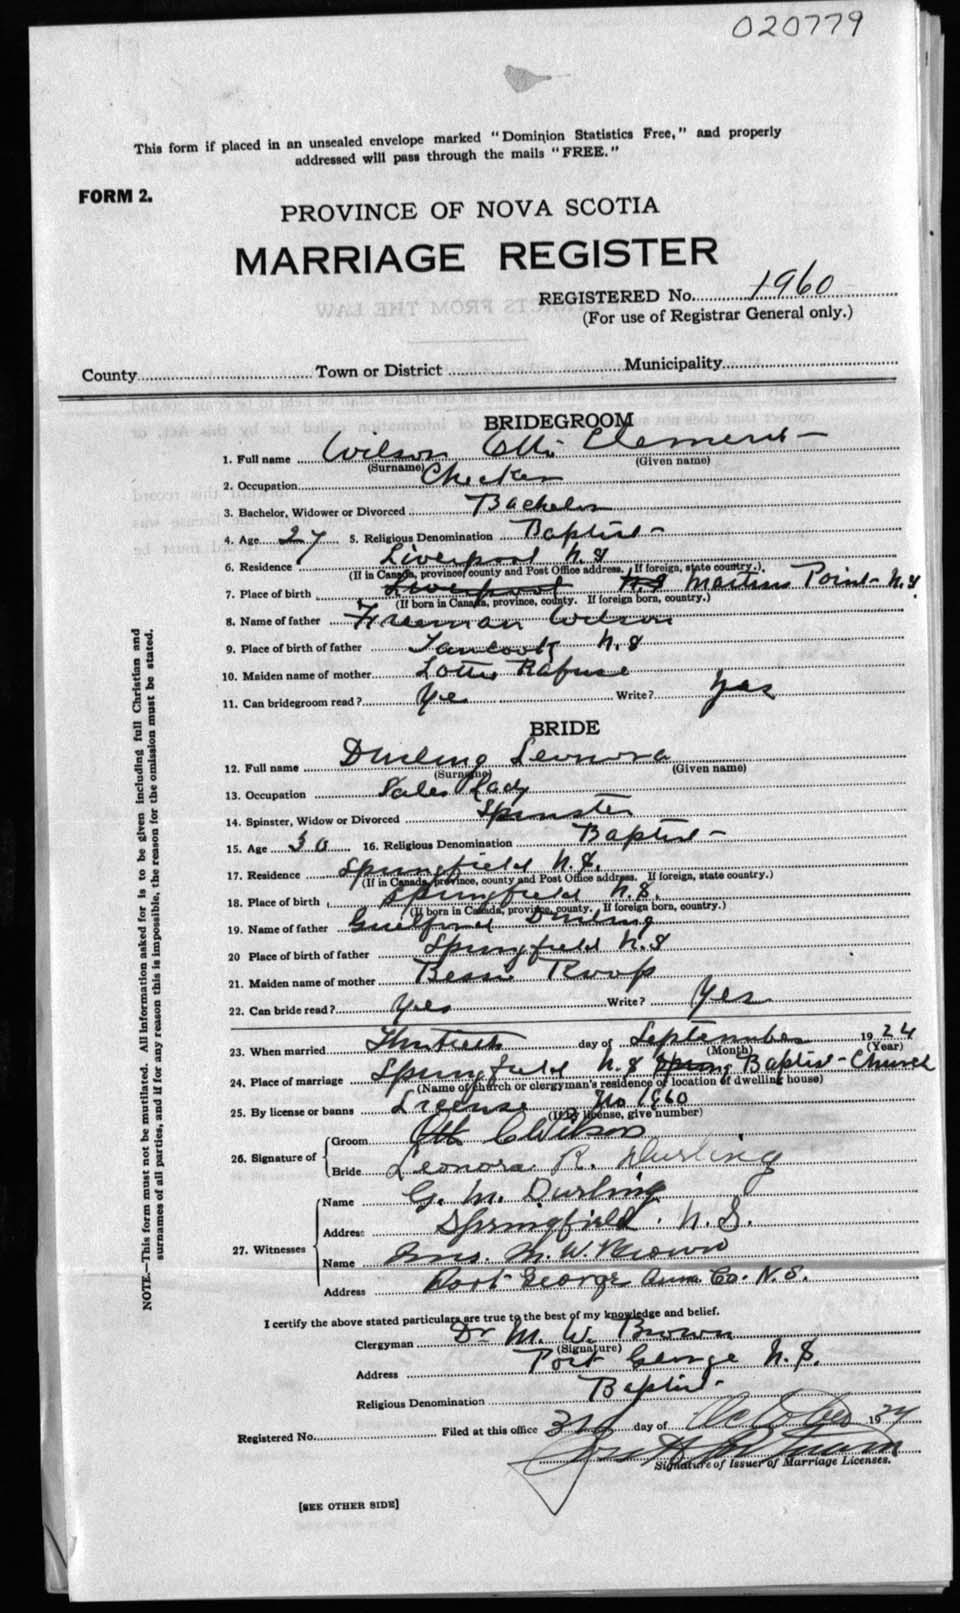 020779
This form if placed in an unsealed envelope marked "Dominion Statistics Free," and properly
addressed will pass through the mails "FREE."
FORM 2.
PROVINCE OF NOVA SCOTIA
MARRIAGE REGISTER
REGISTERED No. 1960
(For use of Registrar General only.)
County Town or District Municipality
BRIDEGROOM
1. Full name Wilson Otto Clement
(Surname) (Given name)
2. Occupation Checker
3. Bachelor, Widower or Divorced Bachelor
4. Age 27 5. Religious Denomination Baptist
6. Residence Liverpool N.S
(If in Canada, province, county and Post Office address. If foreign, state country.)
7. Place of birth Liverpool N.S Martins Point N.S
(If born in Canada, province, county. If foreign born, country.)
8. Name of father Freeman Wilson
9. Place of birth of father Tancook N.S
10. Maiden name of mother Lottie Rafuse
11. Can bridegroom read? Yes Write? Yes
BRIDE
12. Full name Durling Leonora
(Surname) (Given name)
13. Occupation Sales Lady
14. Spinster, Widow or Divorced Spinster
15. Age 30 16. Religious Denomination Baptist
17. Residence Springfield N.S.
(If in Canada, province, county and Post Office address. If foreign, state country.)
18. Place of birth Springfield N.S.
(If born in Canada, province, county. If foreign born, country.)
19. Name of father Guilford Durling
20 Place of birth of father Springfield N.S
21. Maiden name of mother Bessie Roop
22. Can bride read? Yes Write? Yes
23. When married Thirtieth day of September 1924
(Month) (Year)
24. Place of marriage Springfield N.S Spring Baptist Church
(Name of church or clergyman's residence or location of dwelling house)
25. By license or banns License No 1960
(If by license, give number)
26. Signature of Groom Otto C Wilson
Bride Leonora R. Durling
27. Witnesses Name G. M. Durling
Address Springfield. N.S.
Name Mrs. M. W. Brown
Address Port George Anna. Co. N.S.
I certify the above stated particulars are true to the best of my knowledge and belief.
Clergyman Dr M. W. Brown
(Signature)
Address Port George N.S.
Religious Denomination Baptist
Registered No. Filed at this office 3rd day of October 1924
Signature of Issuer of Marriage Licenses.
[SEE OTHER SIDE]
NOTE.—This form must not be mutilated. All information asked for is to be given including full Christian and
surnames of all parties, and if for any reason this is impossible, the reason for the omission must be stated.